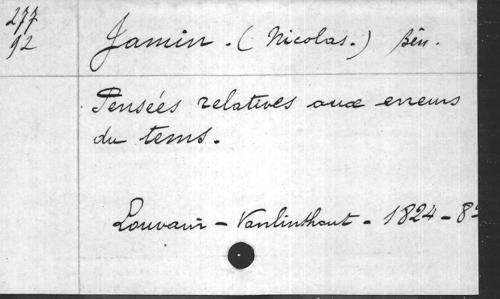 277
92
Jamin. (Nicolas.) Bén.
Pensées relatives aux erreurs
du tems.
Louvain - Vanlinthout - 1824 - 8º